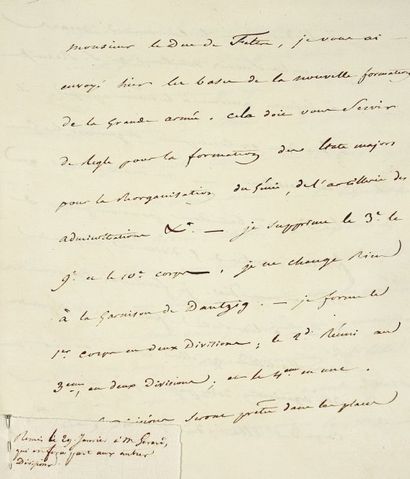 Monsieur le Duc de Feltre, je vous ai
envoyé hier les bases de la nouvelle formation
de la Grande armée. cela doit vous servir
de Règle pour la formation des Etats majors
pour la Réorganisation du Génie, de l'artillerie des
administrations &a. — je supprime le 3e. le
9e. et le 10e. corps —, je ne change Rien
à la Garnison de Dantzig. — je forme le
1er corps en deux Divisions; le 2d. Réuni au
3eme, en deux Divisions; et le 4eme en une.
Divisions seront prêtes dans la place
Remis le 29 Janvier à M. Gerard,
qui en fera part aux autres
Divisions